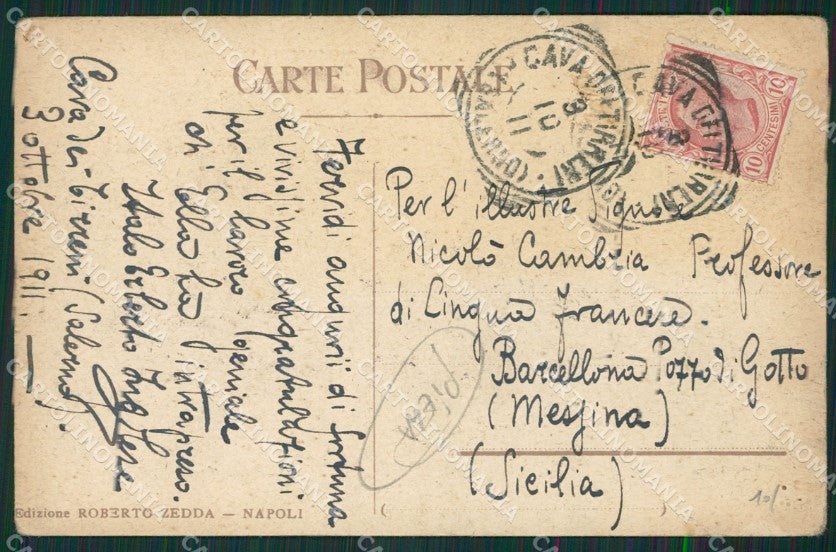 CARTE POSTALE
CAVA DEI TIRRENI
3 10 11
CAVA DEI TIRRENI
10 CENTESIMI 10
Fervidi augurii di fortuna
e vivissime congratulazioni
per il lavoro geniale
ch'Ella ha intrapreso.
Italo Erberto Inglese
Cava dei Tirreni (Salerno),
3 ottobre 1911.
Per l'illustre Signore
Nicolò Cambria Professore
di Lingua francese.
Barcellona Pozzo di Gotto
(Messina)
(Sicilia)
Edizione ROBERTO ZEDDA — NAPOLI
10/
CARTOLINOMANIA